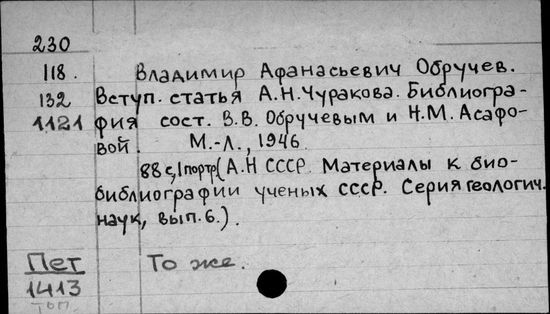 230
118.
132
1121
Владимир Афанасьевич Обручев.
Вступ. статья А.Н.Чуракова. Библиогра-
фия сост. В.В. Обручевым и Н.М. Асафо-
вой. М.-Л., 1946.
88 с, 1 портр (А.Н СССР. Материалы к био-
библиографии ученых СССР. Серия геологич.
наук, вып. 6.).
Пет
1413
То же.